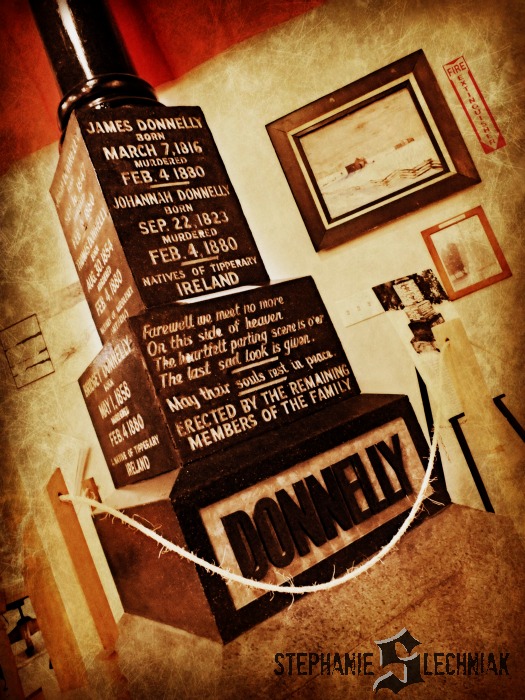 JAMES DONNELLY
BORN
MARCH 7, 1816
MURDERED
FEB. 4 1880
JOHANNAH DONNELLY
BORN
SEP. 22, 1823
MURDERED
FEB. 4, 1880
NATIVES OF TIPPERARY
IRELAND
Farewell we meet no more
On this side of heaven
The heartfelt parting scene is o'er
The last sad look is given.
May their souls rest in peace.
ERECTED BY THE REMAINING
MEMBERS OF THE FAMILY
DONNELLY
DONNELLY
MAY 1, 1858
MURDERED
FEB. 4, 1880
A NATIVE OF TIPPERARY
IRELAND
FIRE
EXTINGUISHER
STEPHANIE S LECHNIAK